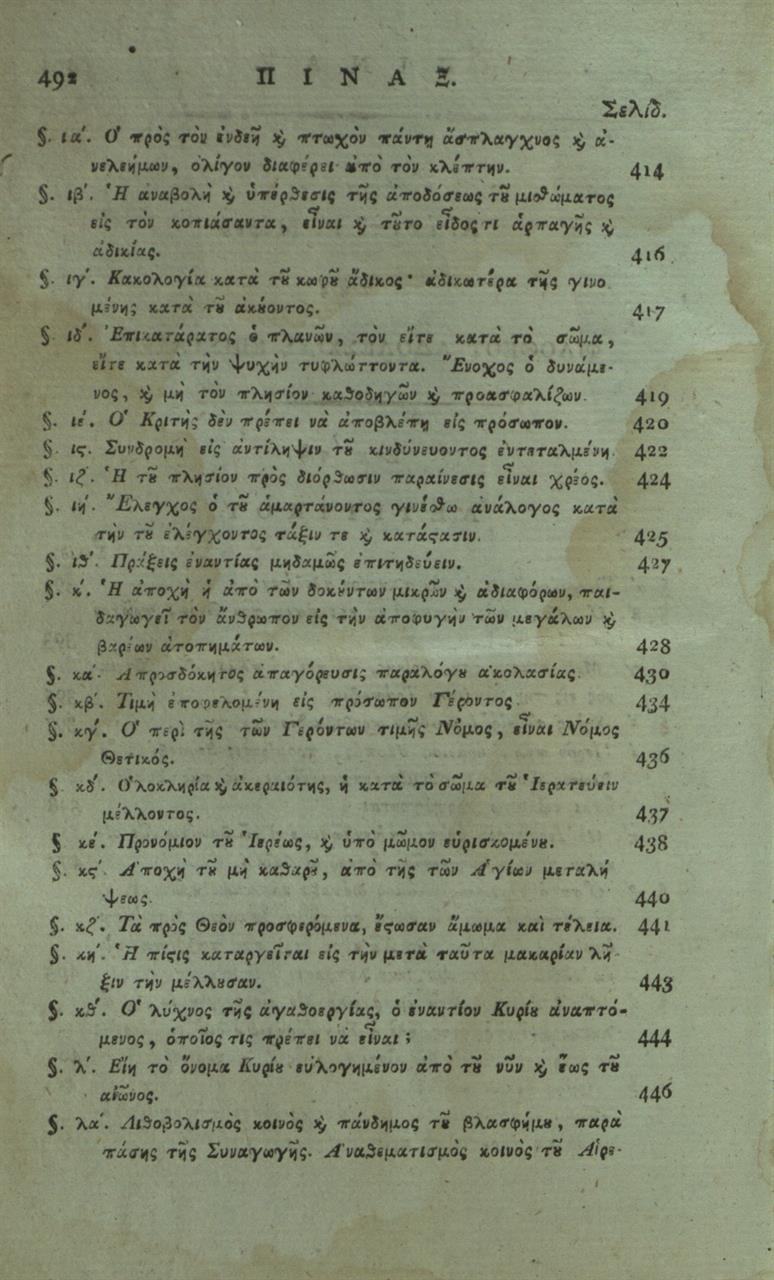 492 ΠΙΝΑΞ.
Σελίδ.
§. ια΄. Ὁ πρὸς τὸν ἐνδεῆ ϗ πτωχὸν πάντη ἄσπλαγχνος ϗ ἀ-
νελεήμων, ὀλίγον διαφέρει ἀπὸ τὸν κλέπτην. 414
§. ιβ΄. Ἡ ἀναβολὴ ϗ ὑπέρθεσις τῆς ἀποδόσεως τȣ͂ μισθώματος
εἰς τὸν κοπιάσαντα, εἶναι ϗ τȣ͂το εἶδος τι ἁρπαγῆς ϗ
ἀδικίας. 416
§. ιγ΄. Κακολογία κατὰ τȣ͂ κωφȣ͂ ἄδικος· ἀδικωτέρα τῆς γινο
μένης κατὰ τȣ͂ ἀκȣ́οντος. 417
§. ιδ΄. Ἐπικατάρατος ὁ πλανῶν, τὸν εἴτε κατὰ τὸ σῶμα,
εἴτε κατὰ τὴν ψυχὴν τυφλώττοντα. Ἔνοχος ὁ δυνάμε-
νος, ϗ μὴ τὸν πλησίον καθοδηγῶν ϗ προασφαλίζων. 419
§. ιέ. Ὁ Κριτὴς δὲν πρέπει νὰ ἀποβλέπῃ εἰς πρόσωπον. 420
§. ις. Συνδρομὴ εἰς ἀντίληψιν τȣ͂ κινδύνευοντος ἐντεταλμένη. 422
§. ιζ΄. Ἡ τȣ͂ πλησίον πρὸς διόρθωσιν παραίνεσις εἶναι χρέος. 424
§. ιή. Ἔλεγχος ὁ τȣ͂ ἁμαρτάνοντος γινέσθω ἀνάλογος κατὰ
τὴν τȣ͂ ἐλέγχοντος τάξιν τε ϗ κατάϛασιν. 425
§. ιθ΄. Πράξεις ἐναντίας μηδαμῶς ἐπιτηδεύειν. 427
§. κ΄. Ἡ ἀποχὴ ἡ ἀπὸ τῶν δοκȣ́ντων μικρῶν ϗ ἀδιαφόρων, παι-
δαγωγεῖ τὸν ἄνθρωπον εἰς τὴν ἀποφυγὴν τῶν μεγάλων ϗ
βαρέων ἀτοπημάτων. 428
§. κα΄. Ἀπροσδόκητος ἀπαγόρευσις παραλόγȣ ἀκολασίας. 430
§. κβ΄. Τιμὴ ἐποφειλομένη εἰς πρόσωπον Γέροντος 434
§. κγ΄. Ὁ περὶ τῆς τῶν Γερόντων τιμῆς Νόμος, εἶναι Νόμος
Θετικός. 436
§ κδ΄. Ὁλοκληρία ϗ ἀκεραιότης, ἡ κατὰ τὸ σῶμα τȣ͂ Ἱερατεύειν
μέλλοντος. 437
§ κέ. Προνόμιον τȣ͂ Ἱερέως, ϗ ὑπὸ μῶμον εὑρισκομένȣ. 438
§. κϛ΄. Ἀποχὴ τȣ͂ μὴ καθαρȣ͂, ἀπὸ τῆς τῶν Ἁγίων μεταλή
ψεως. 440
§. κζ΄. Τὰ πρὸς Θεὸν προσφερόμενα, ἔϛωσαν ἄμωμα καὶ τέλεια. 441
§. κη΄. Ἡ πίϛις καταργεῖται εἰς τὴν μετὰ ταῦτα μακαρίαν λῆ-
ξιν τὴν μέλλȣσαν. 443
§. κθ΄. Ὁ λύχνος τῆς ἀγαθοεργίας, ὁ ἐναντίον Κυρίȣ ἀναπτό-
μενος, ὁποῖος τις πρέπει νὰ εἶναι; 444
§. λ΄. Εἴη τὸ ὄνομα Κυρίȣ εὐλογημένον ἀπὸ τȣ͂ νῦν ϗ ἕως τȣ͂
αἰῶνος. 446
§. λα΄. Λιθοβολισμὸς κοινὸς ϗ πάνδημος τȣ͂ βλασφήμȣ, παρὰ
πάσης τῆς Συναγωγῆς. Ἀναθεματισμὸς κοινὸς τȣ͂ Αἱρε-